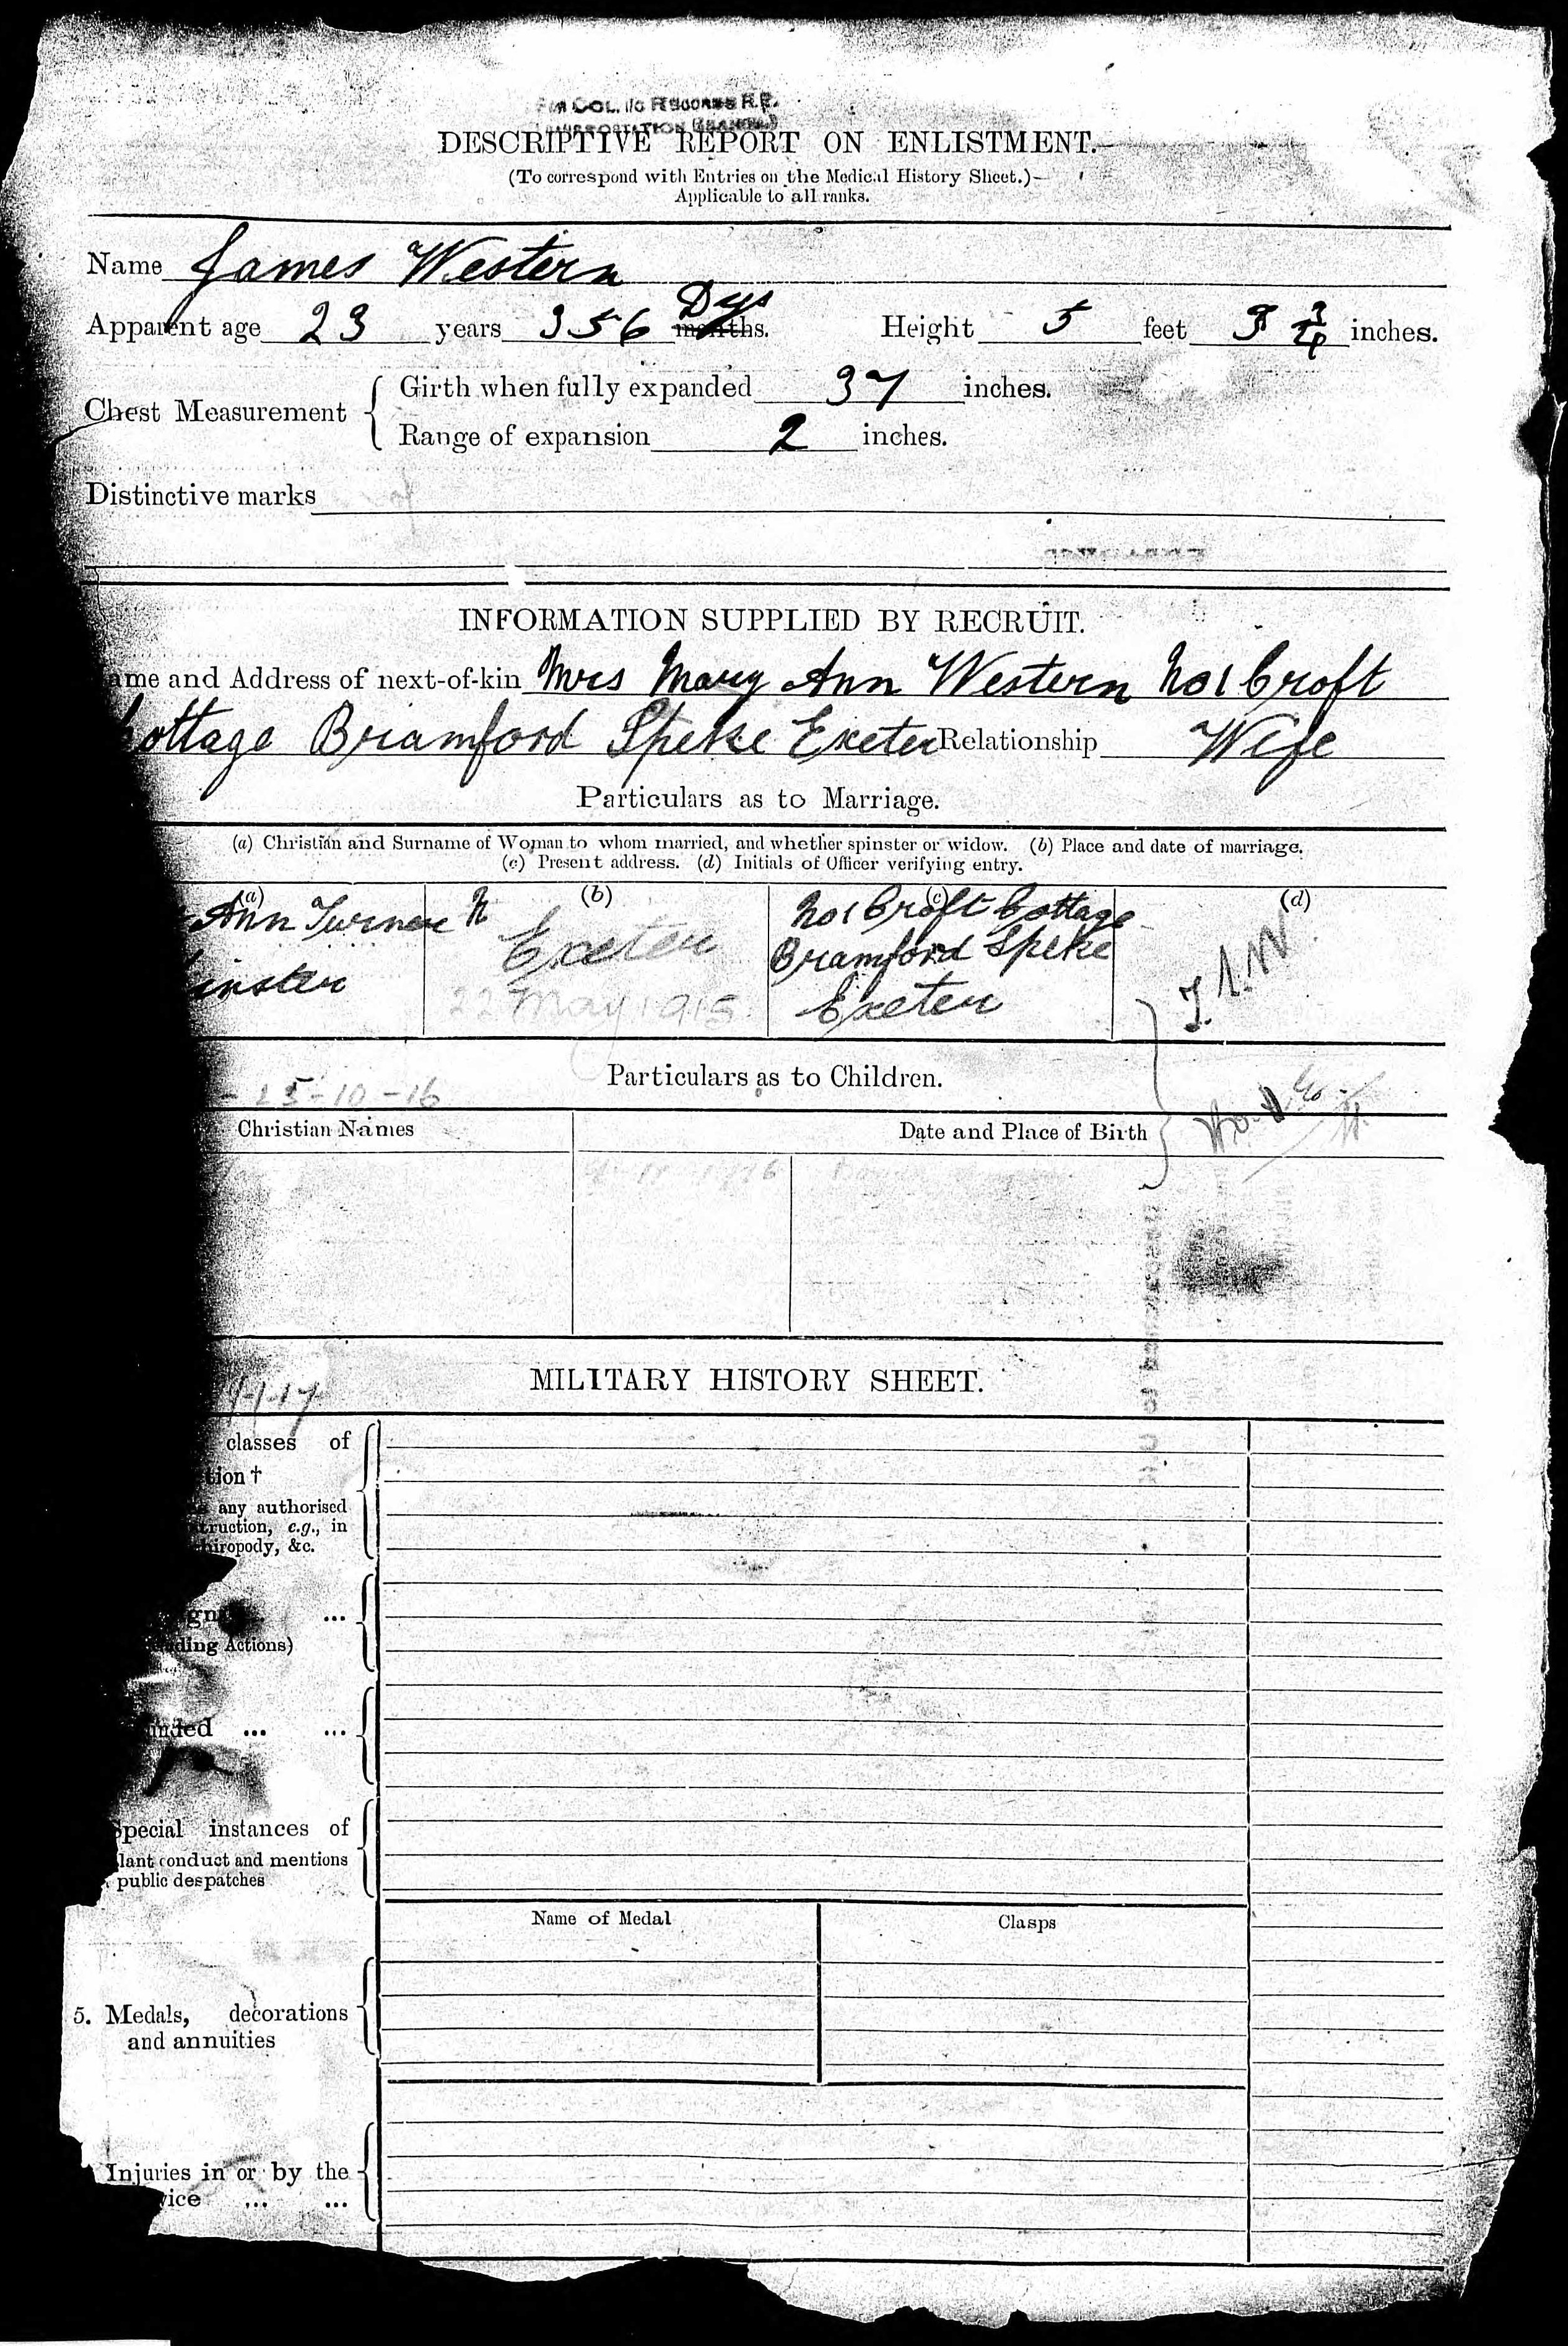 For COL. I/C RECORDS R.E.
TRANSPORTATION (BRANCH)
DESCRIPTIVE REPORT ON ENLISTMENT.
(To correspond with Entries on the Medical History Sheet.)
Applicable to all ranks.
Name James Western
Apparent age 23 years 356 Dys months. Height 5 feet 3 3/4 inches.
Chest Measurement { Girth when fully expanded 37 inches.
Range of expansion 2 inches.
Distinctive marks
INFORMATION SUPPLIED BY RECRUIT.
ame and Address of next-of-kin Mrs Mary Ann Western No 1 Croft
Cottage Bramford Speke Exeter Relationship Wife
Particulars as to Marriage.
(a) Christian and Surname of Woman to whom married, and whether spinster or widow. (b) Place and date of marriage.
(c) Present address. (d) Initials of Officer verifying entry.
(a) (b) (c) (d)
Ann Turner Exeter No 1 Croft Cottage
inster 22 May 1915 Bramford Speke
Exeter
Particulars as to Children.
- 25-10-16
Christian Names Date and Place of Birth
MILITARY HISTORY SHEET.
classes of
tion †
any authorised
truction, e.g., in
hiropody, &c.
ign ...
ding Actions)
unded ... ...
Special instances of
lant conduct and mentions
public despatches
Name of Medal Clasps
5. Medals, decorations
and annuities
Injuries in or by the
vice ... ...